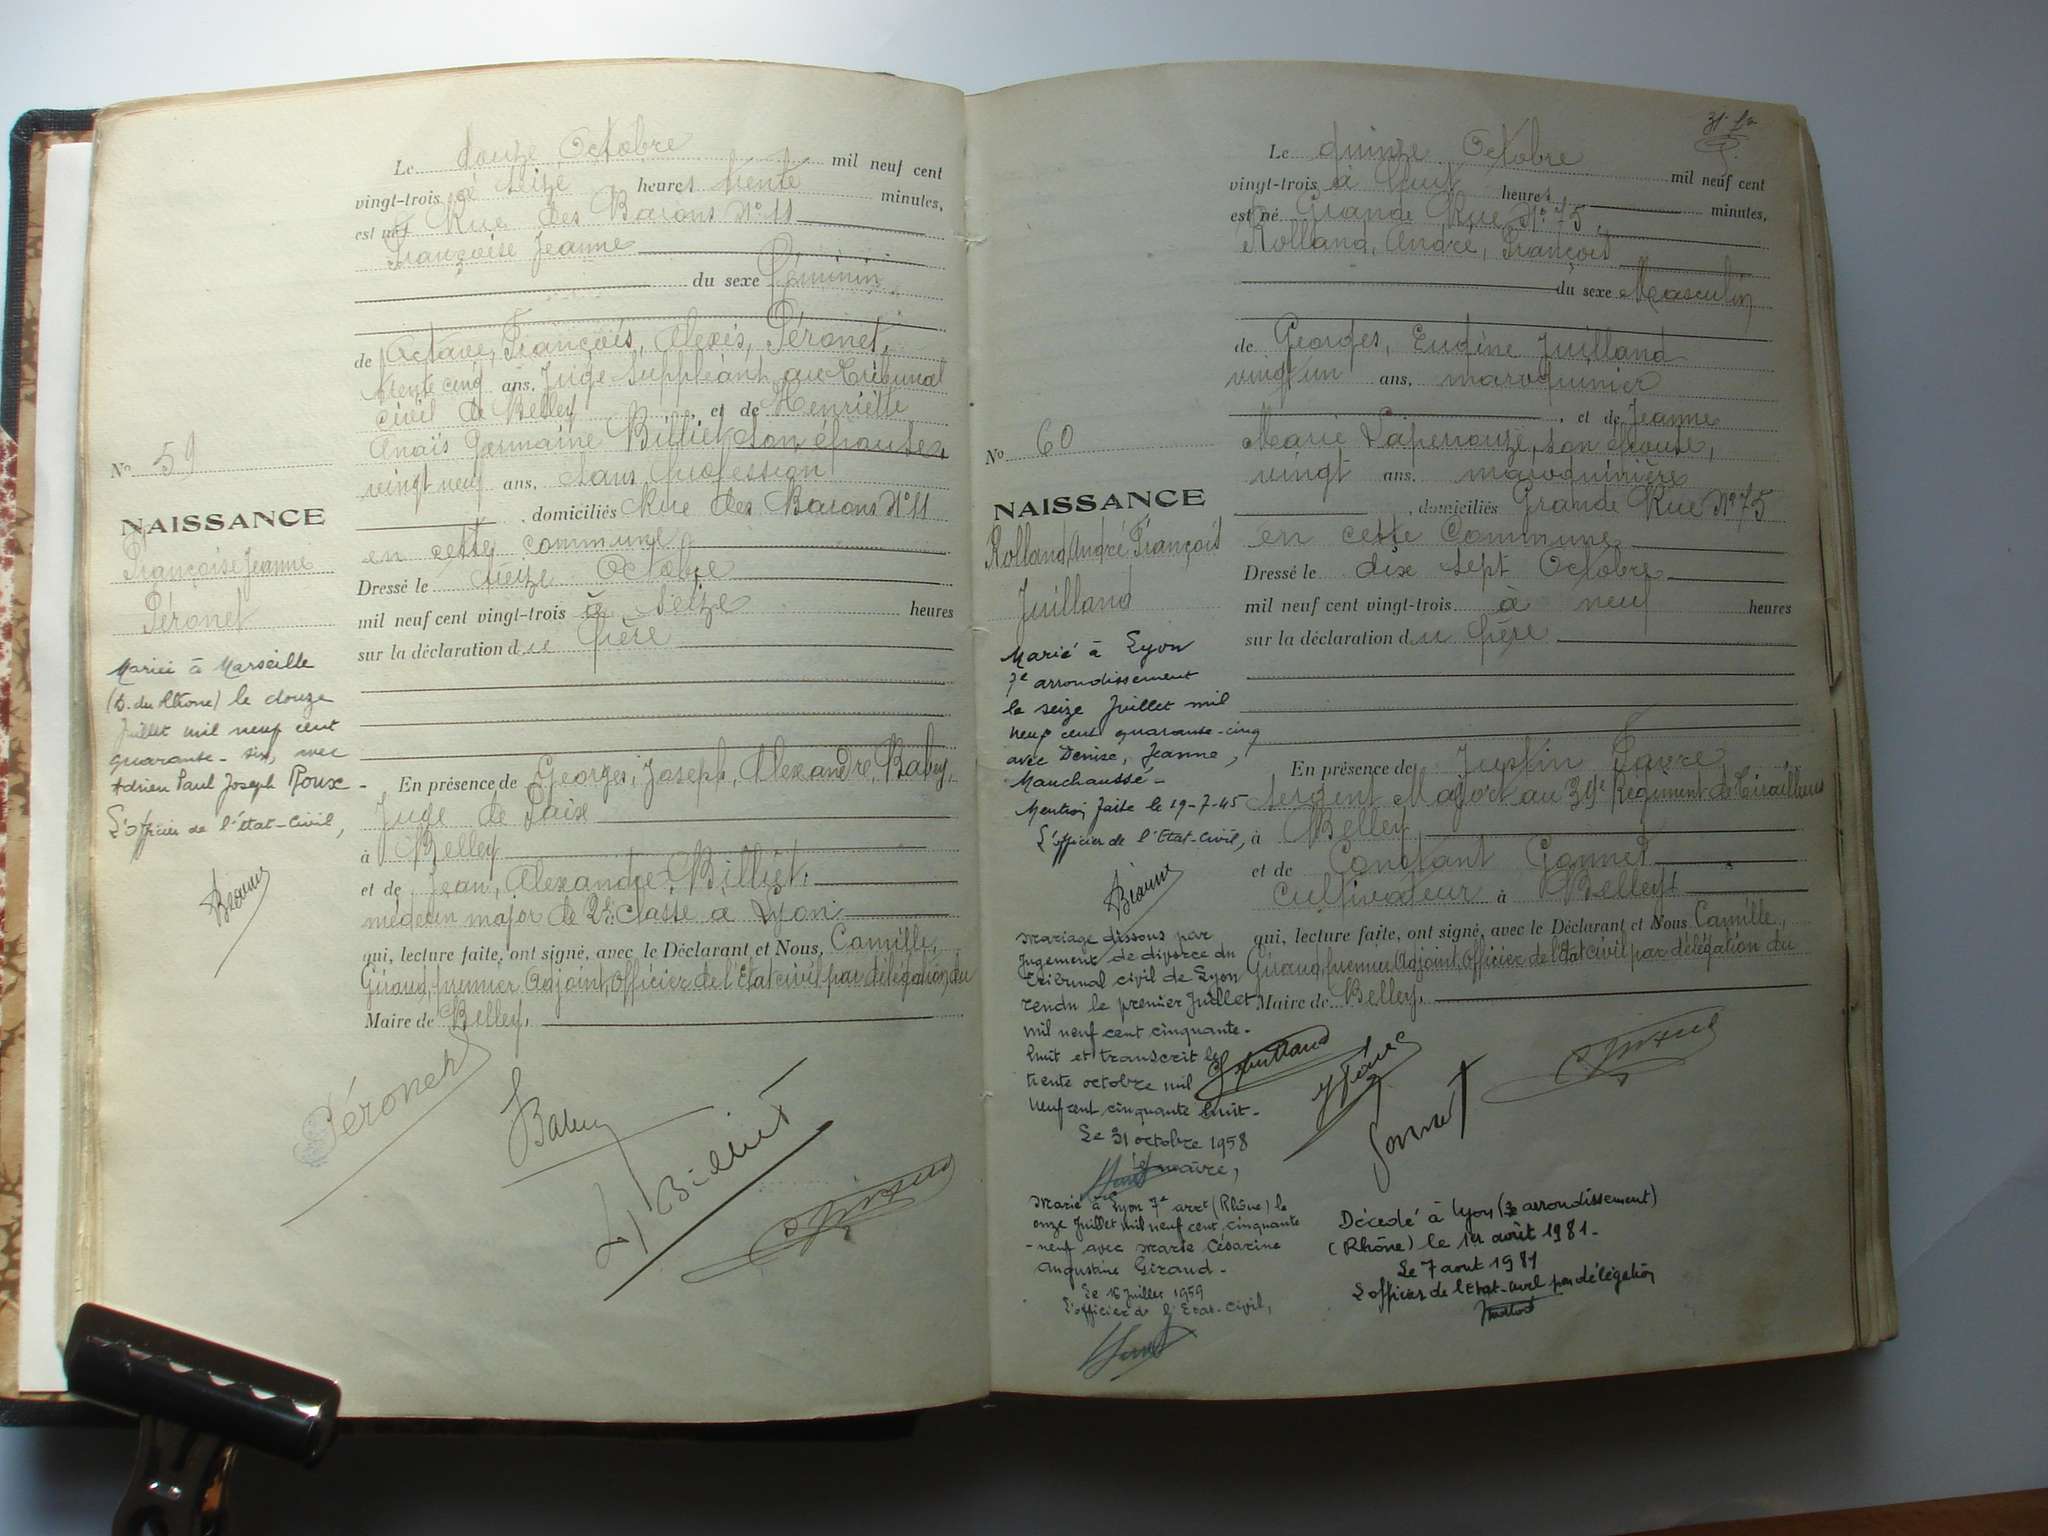 Le douze Octobre mil neuf cent
vingt-trois à seize heures trente minutes,
est née Rue des Barons N° 11
Françoise Jeanne
du sexe Féminin
de Octave, François, Alexis, Péronet,
trente cinq ans, Juge suppléant au Tribunal
civil de Belley, et de Henriette
Anaïs Germaine Billiet son épouse,
vingt neuf ans, sans profession
, domiciliés Rue des Barons N° 11
en cette commune
Dressé le seize Octobre
mil neuf cent vingt-trois à seize heures
sur la déclaration du Père
En présence de Georges, Joseph, Alexandre, Babuy,
Juge de Paix
à Belley
et de Jean, Alexandre, Billiet,
médecin major de 2e classe à Lyon
qui, lecture faite, ont signé, avec le Déclarant et Nous, Camille,
Giraud, premier Adjoint, Officier de l'État civil par délégation du
Maire de Belley.
N° 59
NAISSANCE
Françoise Jeanne
Péronet
Mariée à Marseille
(B. du Rhône) le douze
Juillet mil neuf cent
quarante-six, avec
Adrien Paul Joseph Roux -
L'officier de l'état-civil,
Péronet
Babuy
Billiet
31
Le quinze Octobre mil neuf cent
vingt-trois à huit heures minutes,
est né Grande Rue N° 75,
Rolland, André, François
du sexe Masculin
de Georges, Eugène Juilland
vingt un ans, maroquinier
, et de Jeanne
Marie Laperrouze, son épouse,
vingt ans, maroquinière
, domiciliés Grande Rue N° 75
en cette Commune
Dressé le dix sept Octobre
mil neuf cent vingt-trois à neuf heures
sur la déclaration du Père
En présence de Justin Favre,
Sergent Major au 39e Régiment de Tirailleurs
à Belley,
et de Constant Gonnet
Cultivateur à Belley
qui, lecture faite, ont signé, avec le Déclarant et Nous Camille,
Giraud, premier Adjoint, Officier de l'État civil par délégation du
Maire de Belley.
N° 60
NAISSANCE
Rolland, André François
Juilland
Marié à Lyon
7e arrondissement
le seize Juillet mil
neuf cent quarante-cinq
avec Denise, Jeanne,
Manchaussé -
Mention faite le 19-7-45
L'officier de l'Etat-Civil,
Mariage dissous par
Jugement de divorce du
Tribunal civil de Lyon
rendu le premier Juillet
mil neuf cent cinquante-
huit et transcrit le
trente octobre mil
neuf cent cinquante huit -
Le 31 octobre 1958
Le maire,
Marié à Lyon 7e arrt (Rhône) le
onze Juillet mil neuf cent cinquante
-neuf avec Marie Césarine
Augustine Giraud -
Le 16 Juillet 1959
L'officier de l'Etat-Civil,
Gonnet
Décédé à Lyon (3e arrondissement)
(Rhône) le 1er août 1981 -
Le 7 aout 1981
L'officier de l'Etat-civil par délégation